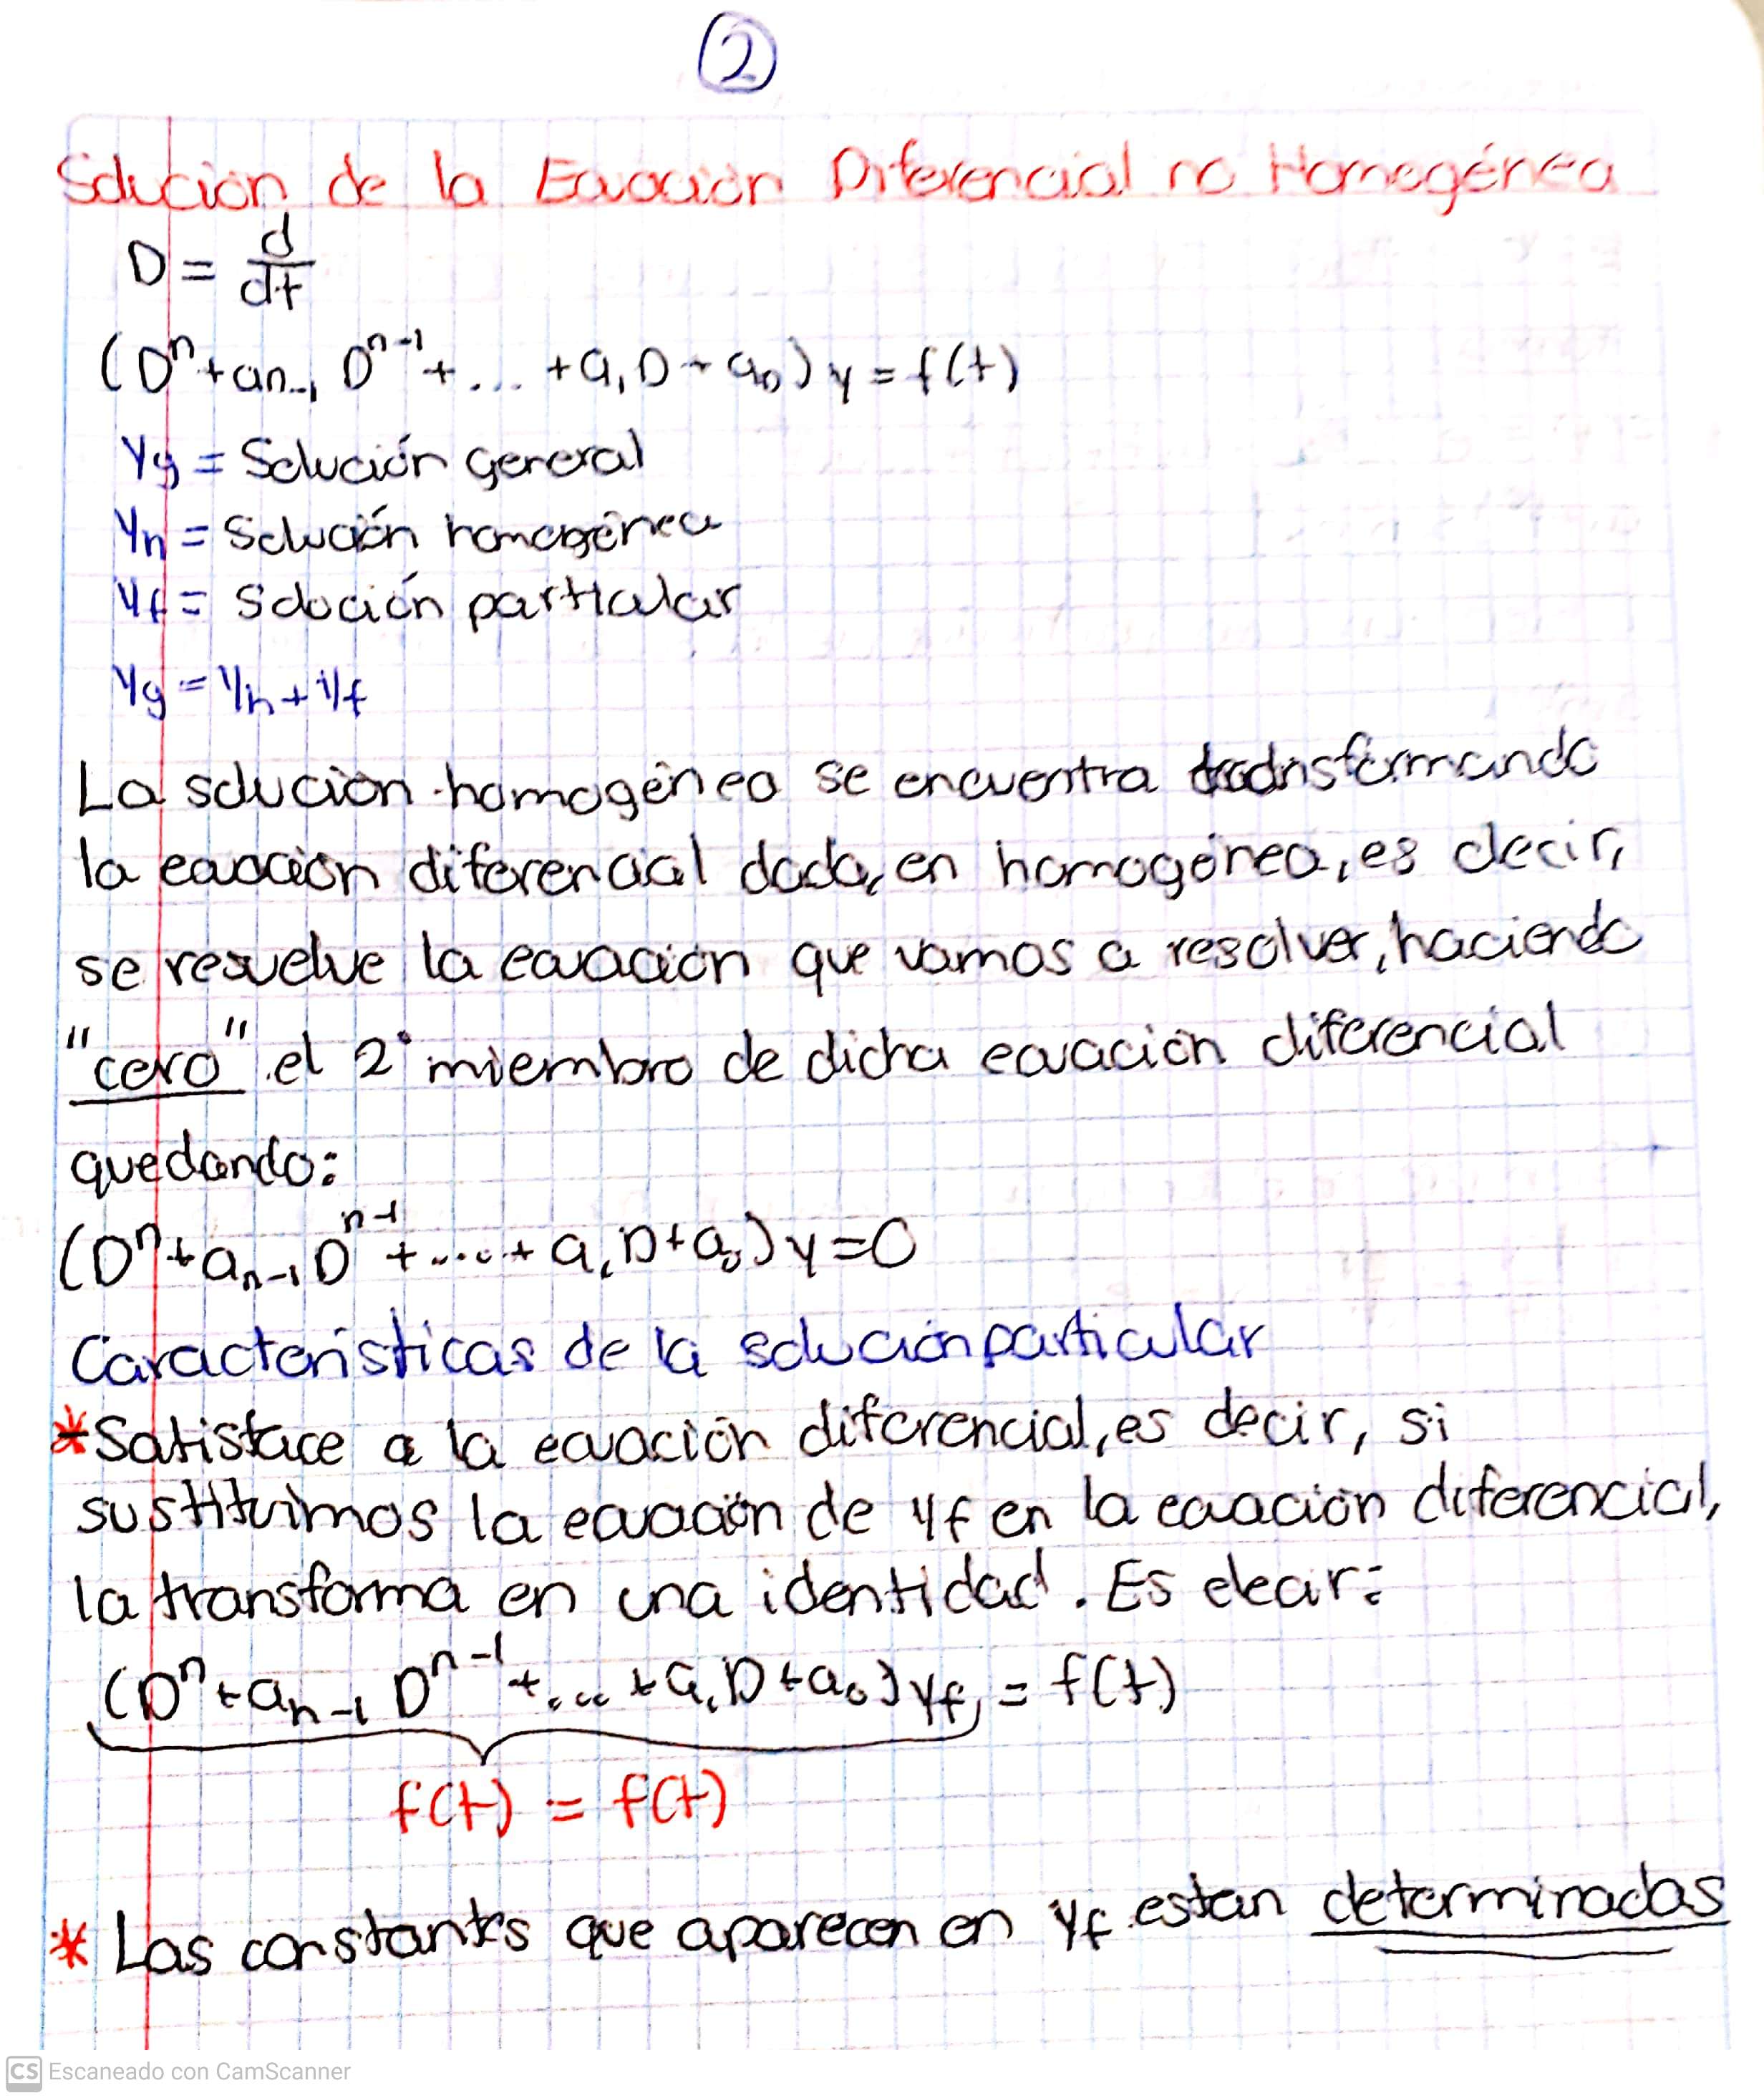 2
Solución de la Ecuación Diferencial no Homogénea
D = d/dt
(Dⁿ + aₙ₋₁ Dⁿ⁻¹ + ... + a₁D + a₀) y = f(t)
yg = Solución general
yh = Solución homogénea
yf = Solución particular
yg = yh + yf
La solución homogénea se encuentra transformando
la ecuación diferencial dada, en homogénea, es decir,
se resuelve la ecuación que vamos a resolver, haciendo
"cero" el 2° miembro de dicha ecuación diferencial
quedando:
(Dⁿ + aₙ₋₁ Dⁿ⁻¹ + .... + a₁D + a₀) y = 0
Características de la solución particular
* Satisface a la ecuación diferencial, es decir, si
sustituimos la ecuación de yf en la ecuación diferencial,
la transforma en una identidad. Es decir:
(Dⁿ + aₙ₋₁ Dⁿ⁻¹ + .... + a₁D + a₀) yf = f(t)
f(t) = f(t)
* Las constantes que aparecen en yf estan determinadas
CS Escaneado con CamScanner